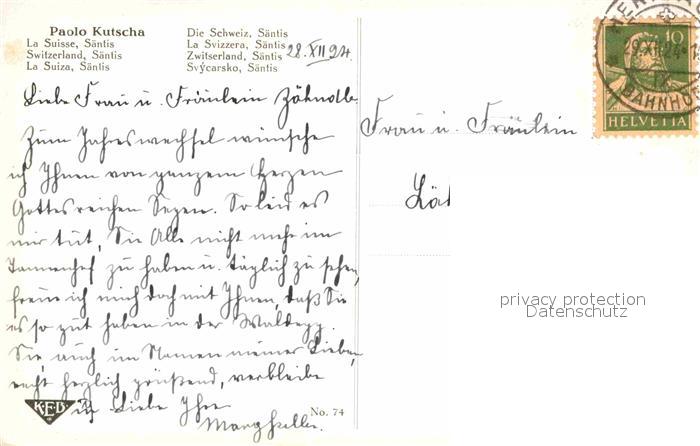 Paolo Kutscha
La Suisse, Säntis
Switzerland, Säntis
La Suiza, Säntis
Die Schweiz, Säntis
La Svizzera, Säntis
Zwitserland, Säntis
Svýcarsko, Säntis
28. XII 24.
Liebe Frau u. Fräulein
Zum Jahreswechsel wünsche
ich Ihnen von ganzem Herzen
Gottes reichen Segen. So leid es
mir tut, Sie Alle nicht mehr im
Tannenhof zu haben u. täglich zu sehen,
freue ich mich doch mit Ihnen, daß Sie
es so gut haben in der Waldegg.
Sie, auch im Namen meiner Lieben,
recht herzlich grüßend, verbleibe
in Liebe Ihre
KEB
No. 74
Frau u. Fräulein
10
HELVETIA
BAHNHOF
privacy protection
Datenschutz